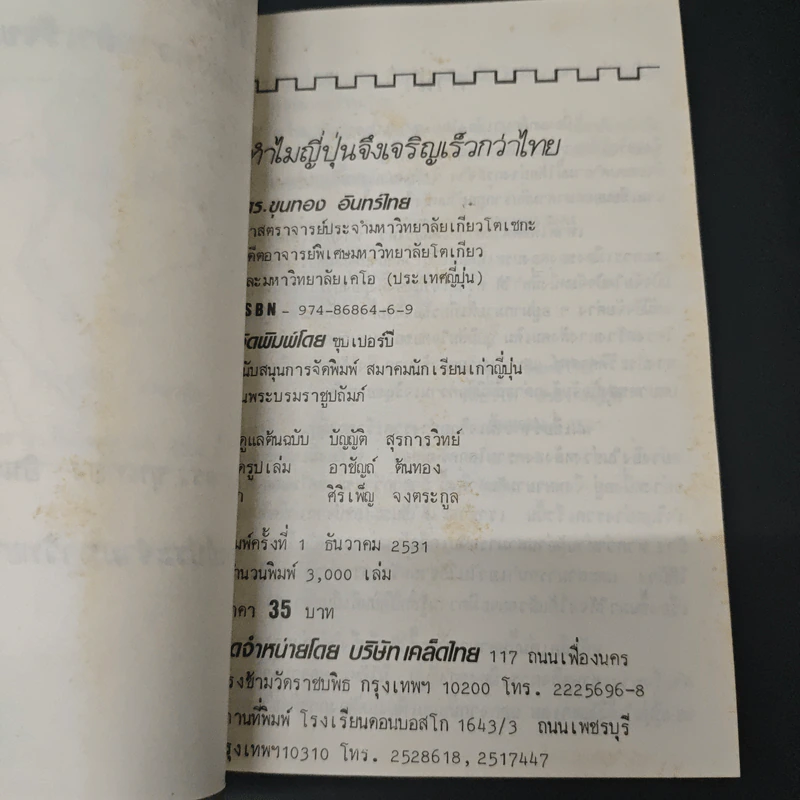 ทำไมญี่ปุ่นจึงเจริญเร็วกว่าไทย
ดร.ขุนทอง อินทร์ไทย
ศาสตราจารย์ประจำมหาวิทยาลัยเกียวโตเซกะ
อดีตอาจารย์พิเศษมหาวิทยาลัยโตเกียว
และมหาวิทยาลัยเคโอ (ประเทศญี่ปุ่น)
ISBN - 974-86864-6-9
จัดพิมพ์โดย ซุบเปอร์บี
สนับสนุนการจัดพิมพ์ สมาคมนักเรียนเก่าญี่ปุ่น
ในพระบรมราชูปถัมภ์
ดูแลต้นฉบับ บัญญัติ สุรการวิทย์
รูปเล่ม อาชัญถ์ ต้นทอง
ศิริเพ็ญ จงตระกูล
พิมพ์ครั้งที่ 1 ธันวาคม 2531
จำนวนพิมพ์ 3,000 เล่ม
ราคา 35 บาท
จัดจำหน่ายโดย บริษัทเคล็ดไทย 117 ถนนเฟื่องนคร
ตรงข้ามวัดราชบพิธ กรุงเทพฯ 10200 โทร. 2225696-8
สถานที่พิมพ์ โรงเรียนดอนบอสโก 1643/3 ถนนเพชรบุรี
กรุงเทพฯ10310 โทร. 2528618, 2517447